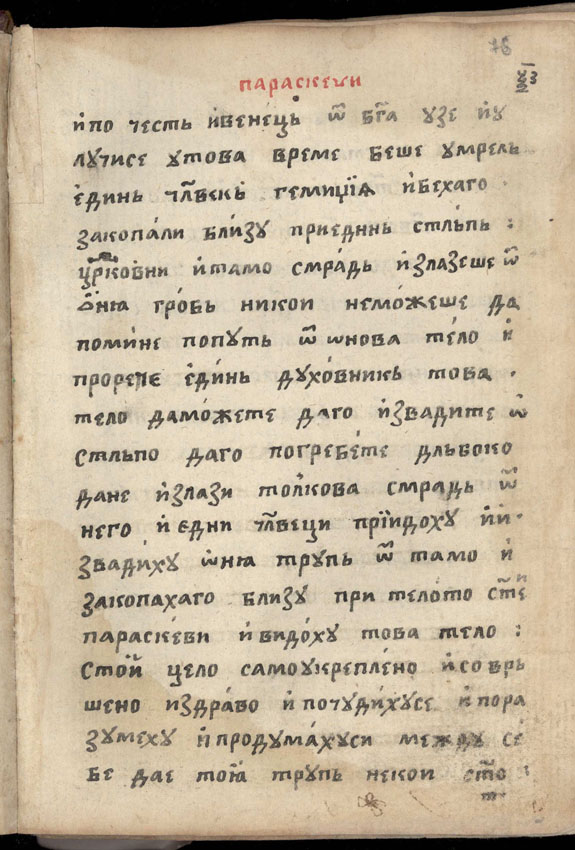 78
ПАРАСКЕѴИ
и҆по че́сть и҆венець ѿ бг҃а узе и҆у
лучисе утова време беше умрель
е҆динь чл҃векь гемиџїѧ и҆бехаго
закопа́ли бли́зу приединь стльпь :
цр҃ковни и҆тамо смра́дь и҆злазеше ѿ
гробь никои немо́жеше да
поми́не попуть ѿ ѡнова те́ло и҆
прорече е҆ди́нь духо́вникь това .
тело дамо́жете даго и҆звадите ѿ
стльпо даго погребе́те дльбоко
дане и҆злази толкова смрадь ѿ
него и҆ едни чл҃веци прїидоху и҆и
звади́ху ѡ҆нꙗ трупь ѿ тамо и҆
закопахаго близу́ при телото ст҃еи
параске́ви и҆видо́ху това тело :
Стои́ цело самоукрепле́но и҆совръ
шено издра́во и҆почуди́хусе и҆пора
зумеху и҆продума́хуси между се́
бе дае тоꙗ трупь некои ст҃о :